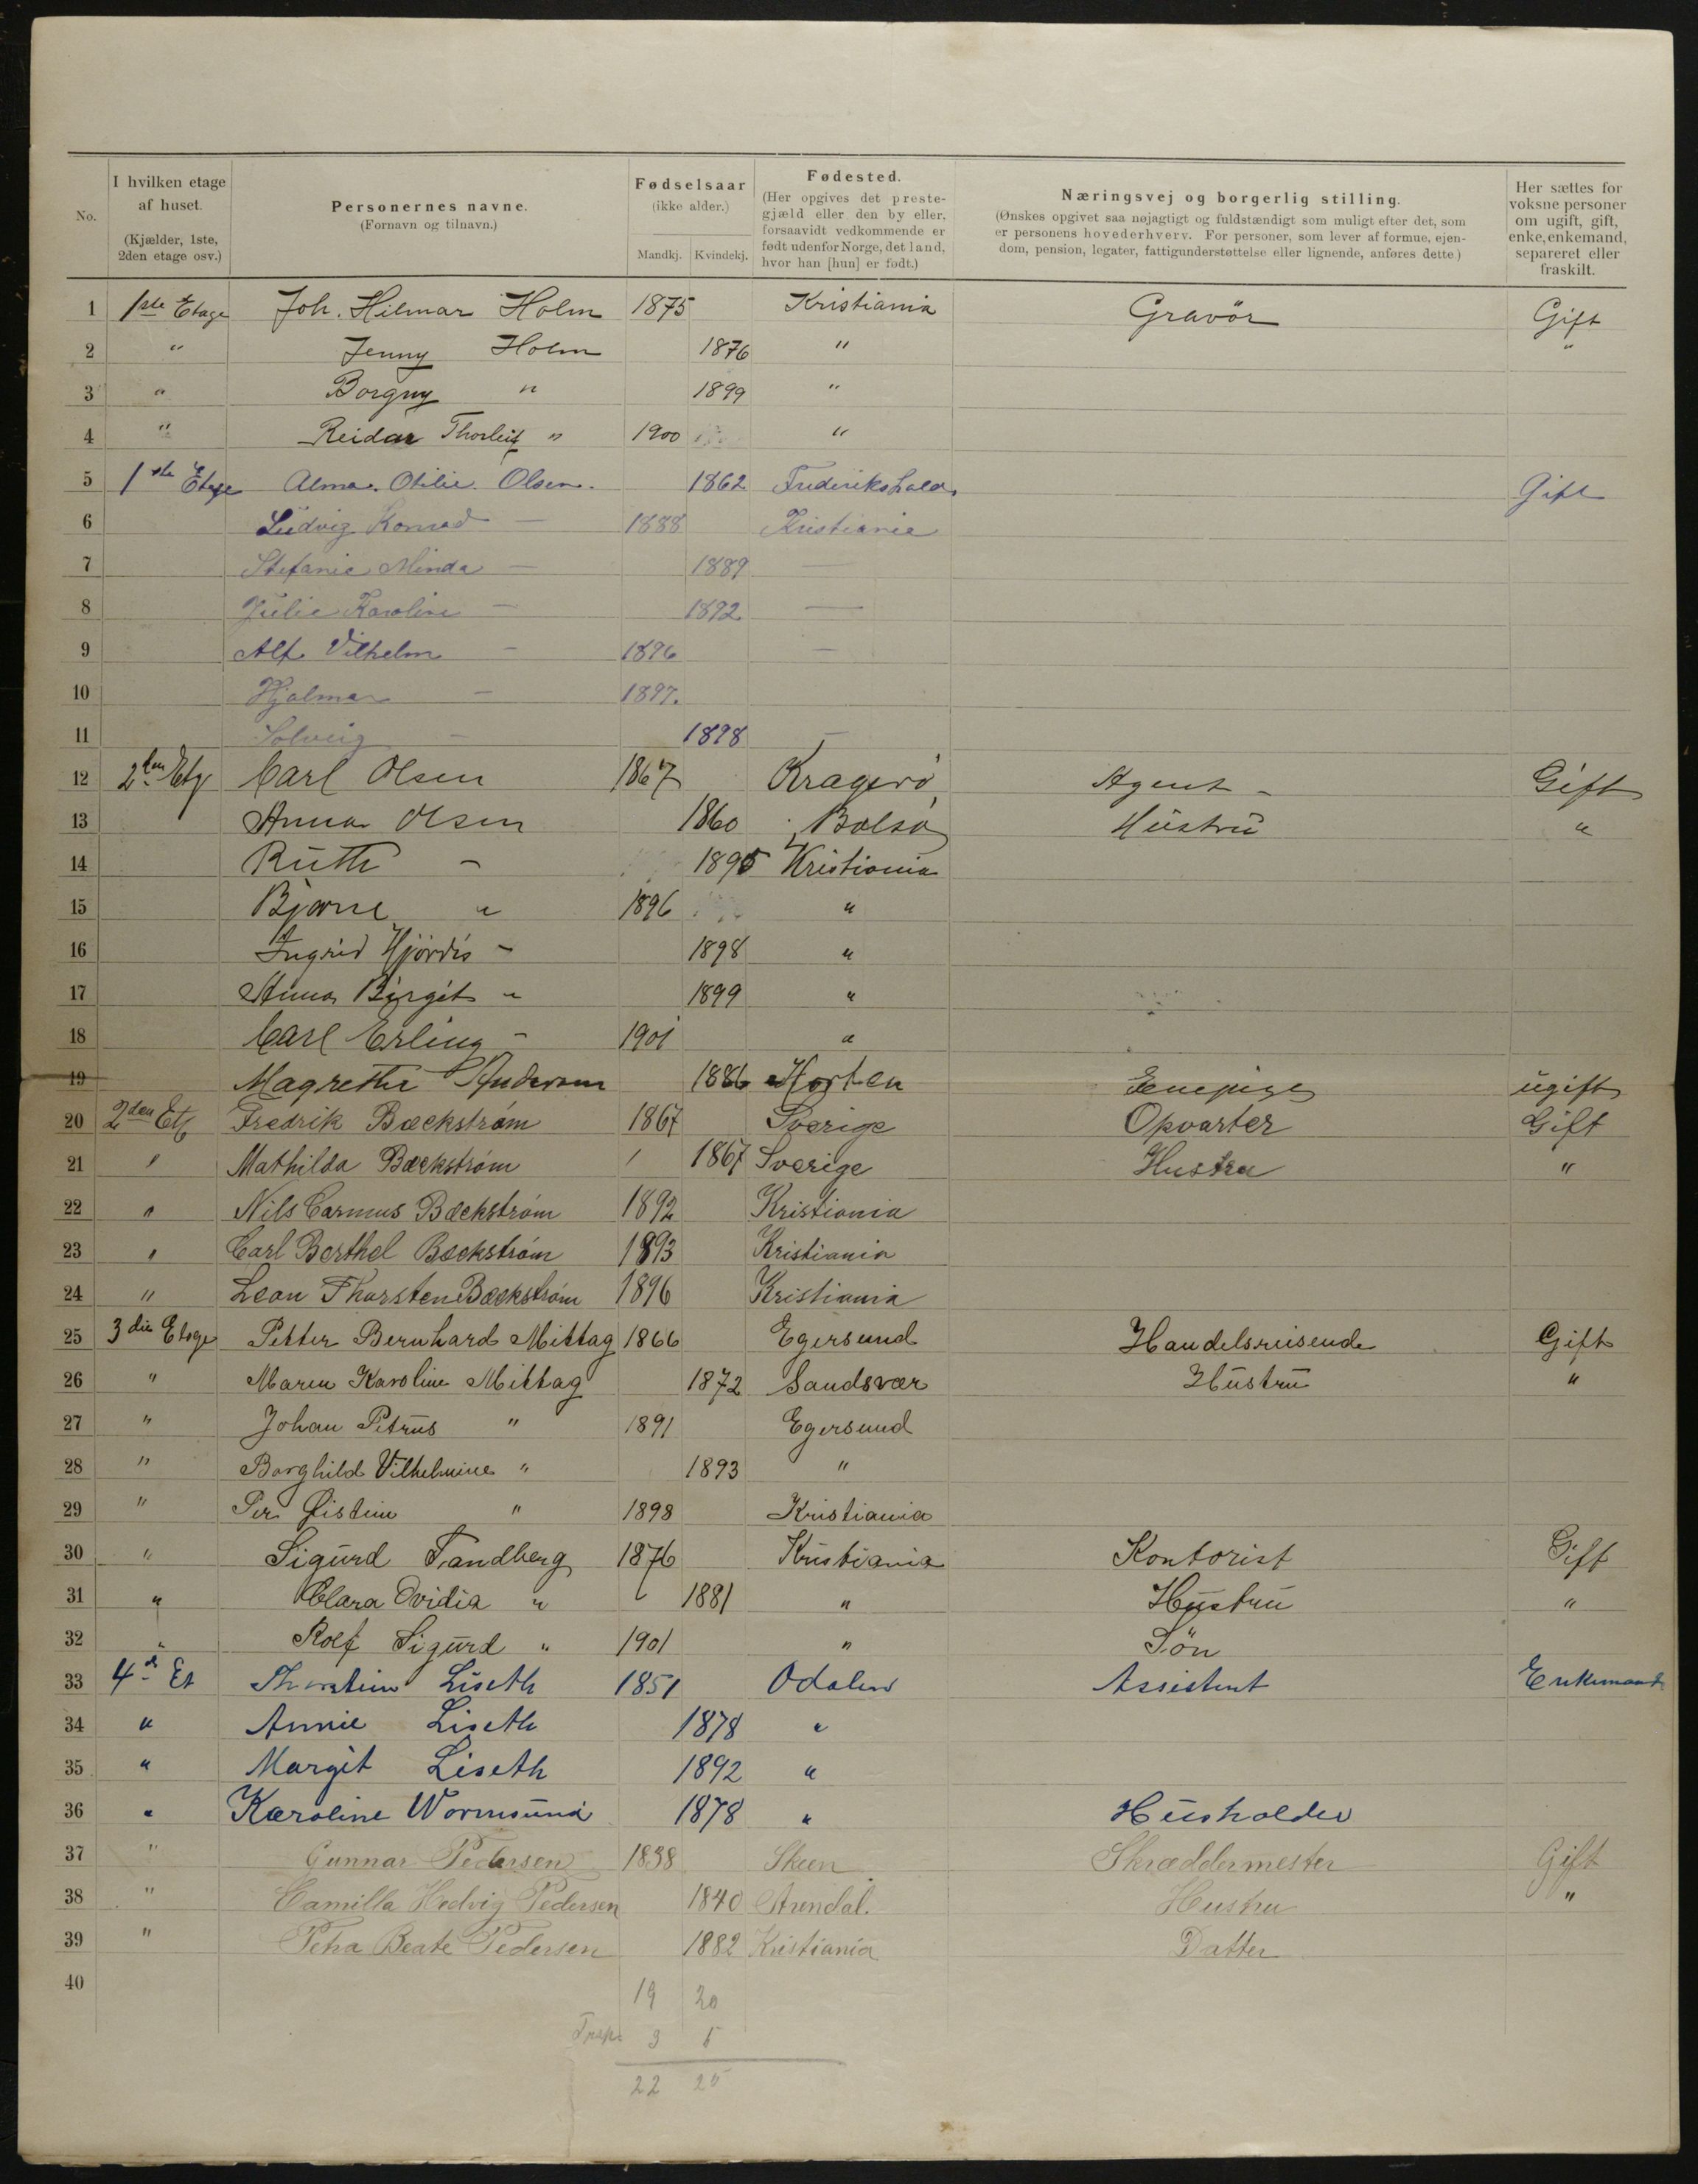 No.
I hvilken etage af huset. (Kjælder, 1ste, 2den etage osv.)
Personernes navne. (Fornavn og tilnavn.)
Fødselsaar (ikke alder.) Mandkj. Kvindekj.
Fødested. (Her opgives det prestegjæld eller den by eller, forsaavidt vedkommende er født udenfor Norge, det land, hvor han [hun] er født.)
Næringsvej og borgerlig stilling. (Ønskes opgivet saa nøjagtigt og fuldstændigt som muligt efter det, som er personens hovederhverv. For personer, som lever af formue, ejendom, pension, legater, fattigunderstøttelse eller lignende, anføres dette.)
Her sættes for voksne personer om ugift, gift, enke, enkemand, separeret eller fraskilt.
1 1ste Etage Joh. Hilmar Holm 1875 Kristiania Gravör Gift
2 " Jenny Holm 1876 " "
3 " Borgny " 1899 "
4 " Reidar Thorleif " 1900 "
5 1ste Etage Alma. Otilie. Olsen. 1862 Frederikshald. Gift
6 Ludvig Konrad — 1888 Kristiania
7 Stefanie Minda — 1889 —
8 Julie Karoline — 1892 —
9 Alf Vilhelm — 1896 —
10 Hjalmar — 1897.
11 Solveig — 1898 —
12 2den Etg Carl Olsen 1867 Kragerö Agent - Gift
13 Anna Olsen 1860 Bolsö Hustru "
14 Ruth - 1895 Kristiania
15 Bjarne " 1896 "
16 Ingrid Hjördis - 1898 "
17 Anna Birgit " 1899 "
18 Carl Erling - 1901 "
19 Magrethe Andersen 1886 Horten Tenepige ugift
20 2den Etg Fredrik Bæckstrøm 1867 Sverige Opvarter Gift
21 " Mathilda Bæckstrøm 1867 Sverige Hustru "
22 " Nils Carmus Bæckstrøm 1892 Kristiania
23 " Carl Berthel Bæckstrøm 1893 Kristiania
24 " Leon Thorsten Bæckstrøm 1896 Kristiania
25 3die Etage Petter Bernhard Mittag 1866 Egersund Handelsreisende Gift
26 " Maren Karoline Mittag 1872 Sandsvær Hustru "
27 " Johan Petrus " 1891 Egersund
28 " Borghild Vilhelmine " 1893 "
29 " Per Øistein " 1898 Kristiania
30 " Sigurd Tandberg 1876 Kristiania Kontorist Gift
31 " Clara Ovidia " 1881 " Hustru "
32 " Rolf Sigurd " 1901 " Sön
33 4de Et Thorstein Liseth 1851 Odalen Assistent Enkemand
34 " Annie Liseth 1878 "
35 " Margit Liseth 1892 "
36 " Karoline Wormsund 1878 " Husholder
37 " Gunnar Pedersen 1838 Skeen Skræddermester Gift
38 " Camilla Hedvig Pedersen 1840 Arendal. Hustru "
39 " Petra Beate Pedersen 1882 Kristiania Datter
40
19 20
3 5
22 25